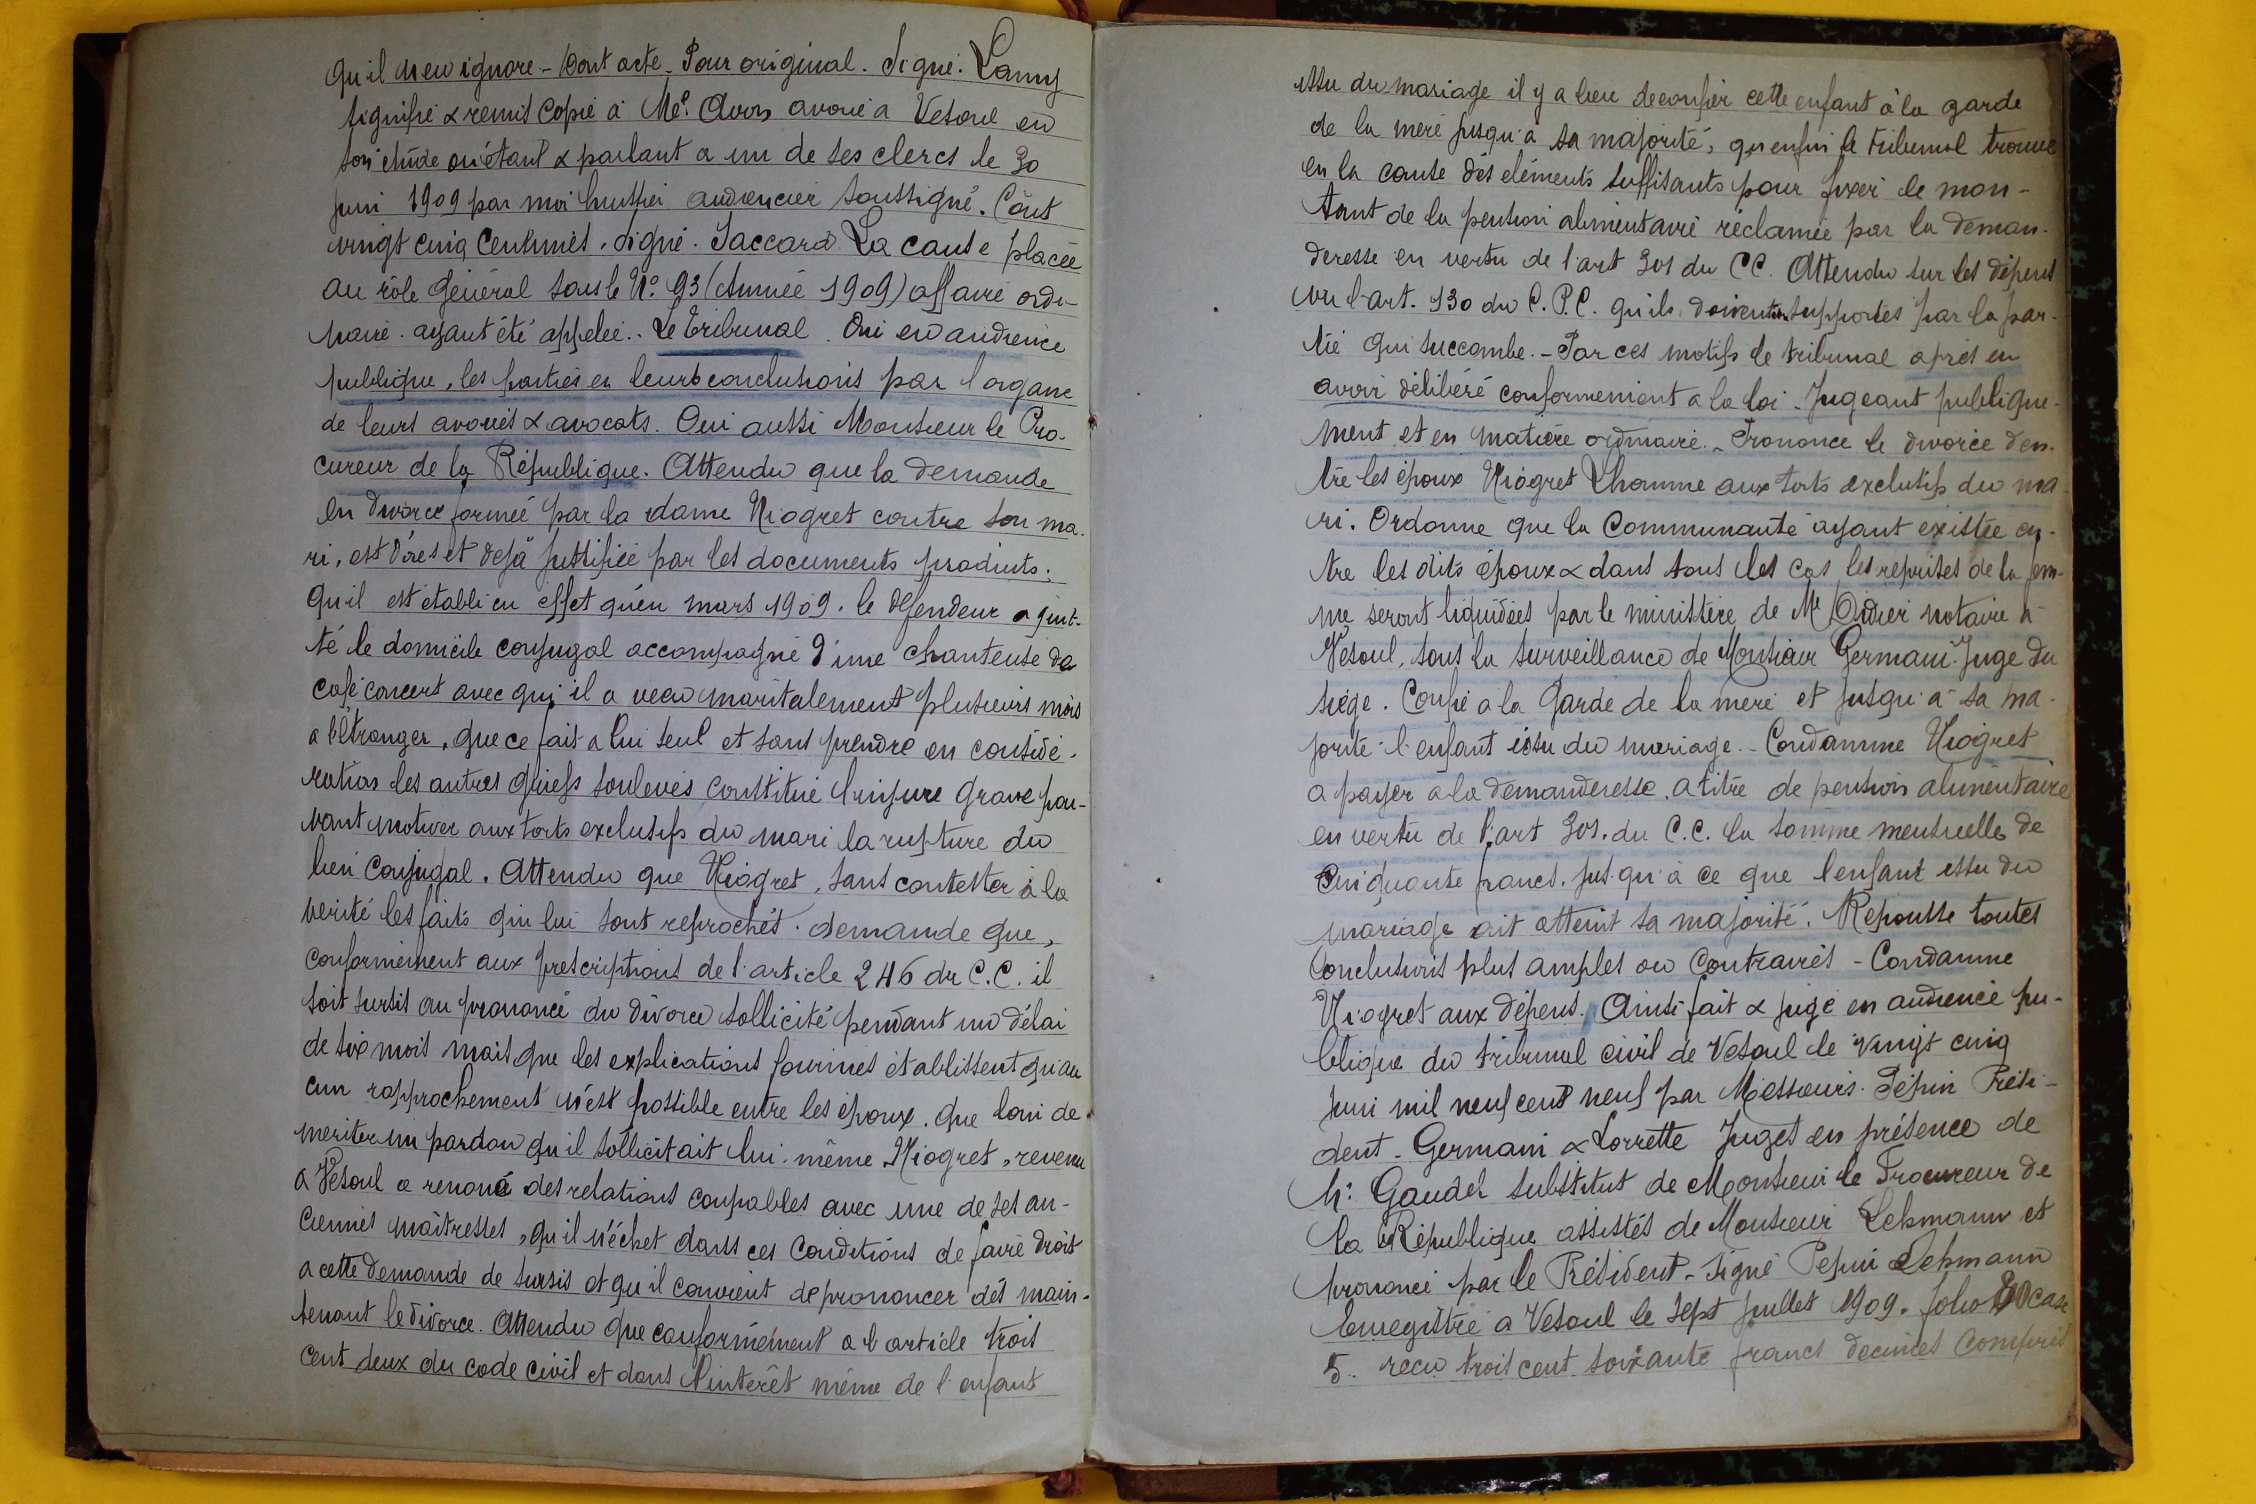 qu'il n'en ignore - Dont acte - Pour original. Signé. Lamy
Signifié & remis copie à Me. Avon avoué a Vesoul en
son étude où étant & parlant a un de ses clercs le 30
juin 1909 par moi huissier audiencier soussigné. Coût
vingt cinq centimes. signé. Jaccard La cause placée
au rôle général sous le No. 93 (Année 1909) affaire ordi-
naire. ayant été appelée.. Le tribunal. Oui en audience
publique, les parties en leurs conclusions par l'organe
de leurs avoués & avocats. Oui aussi Monsieur le Pro-
cureur de la République. Attendu que la demande
en divorce formée par la dame Niogret contre son ma-
ri, est d'ores et dejà justifiée par les documents produits.
Qu'il est établi en effet qu'en mars 1909. le défendeur a quit-
té le domicile conjugal accompagné d'une chanteuse de
café concert avec qui il a vécu maritalement plusieurs mois
a l'étranger, que ce fait a lui seul et sans prendre en considé-
ration les autres griefs soulevés constitue l'injure grave pou-
vant motiver aux torts exclusifs du mari la rupture du
lien conjugal. Attendu que Niogret, sans contester à la
vérité les faits qui lui sont reprochés. demande que,
conformément aux prescriptions de l'article 246 du C.C. il
soit sursis au prononcé du divorce sollicité pendant un délai
de six mois mais que les explications fournies établissent qu'au
cun rapprochement n'est possible entre les époux. que loin de
mériter un pardon qu'il sollicitait lui-même Niogret, revenu
a Vesoul a renoué des relations coupables avec une de ses an-
ciennes maîtresses, qu'il n'échet dans ces conditions de faire droit
a cette demande de sursis et qu'il convient de prononcer dès main-
tenant le divorce. Attendu que conformément a l'article trois
cent deux du code civil et dans l'intérêt même de l'enfant
issu du mariage il y a lieu de confier cette enfant à la garde
de la mère jusqu'à sa majorité, qu'enfin le tribunal trouve
en la cause des éléments suffisants pour fixer le mon-
tant de la pension alimentaire réclamée par la deman-
deresse en vertu de l'art 301 du CC. Attendu sur les dépens
vu l'art. 130 du C.P.C. qu'ils doivent supportés par la par-
tie qui succombe. - Par ces motifs le tribunal après en
avoir délibéré conformément a la loi - Jugeant publique-
ment et en matière ordinaire. - Prononce le divorce d'en-
tre les époux Niogret Lhomme aux torts exclusifs du ma-
ri. Ordonne que la Communauté ayant existée en-
tre les dits époux & dans tous les cas les reprises de la fem-
me seront liquidées par le ministère de Me Didier notaire à
Vesoul, sous la surveillance de Monsieur Germain Juge du
siège. Confie a la garde de la mère et jusqu'à sa ma-
jorité l'enfant issu du mariage. - Condamne Niogret
a payer a la demanderesse, a titre de pension alimentaire
en vertu de l'art 301. du C.C. la somme mensuelle de
cinquante francs. jusqu'à ce que l'enfant issu du
mariage ait atteint sa majorité. Repousse toutes
conclusions plus amples ou contraires - Condamne
Niogret aux dépens. Ainsi fait & jugé en audience pu-
blique du tribunal civil de Vesoul le vingt cinq
juin mil neuf cent neuf par Messieurs. Pépin Prési-
dent - Germain & Lorrette Juges en présence de
Mr. Gaudel substitut de Monsieur le Procureur de
la République assistés de Monsieur Lehmann et
prononcé par le Président - Signé Pepin Lehmann
Enregistré a Vesoul le sept juillet 1909. folio 80 case
5.. reçu trois cent soixante francs decimes compris